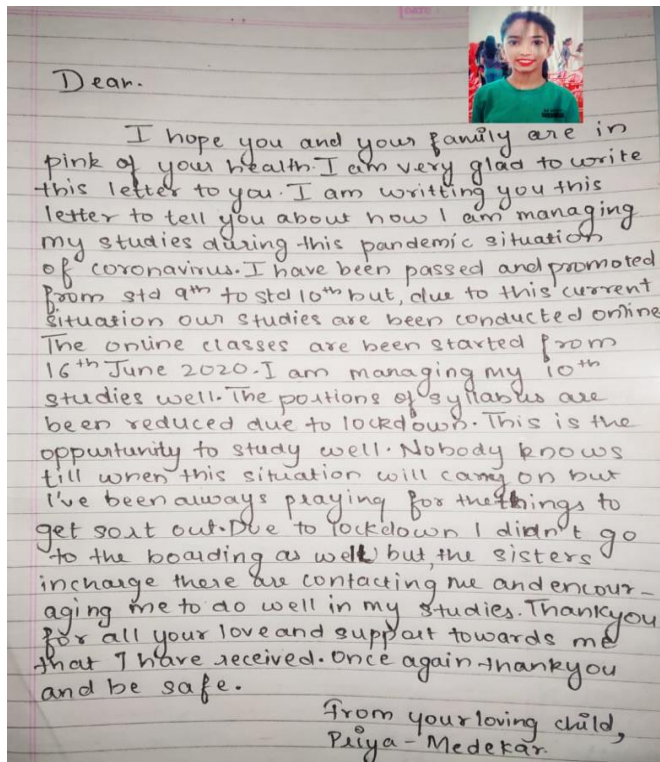 DATE
Dear.
I hope you and your family are in
pink of your health. I am very glad to write
this letter to you. I am writting you this
letter to tell you about how I am managing
my studies during this pandemic situation
of coronavirus. I have been passed and promoted
from std 9th to std 10th but, due to this current
situation our studies are been conducted online
The online classes are been started from
16th June 2020. I am managing my 10th
studies well. The portions of syllabus are
been reduced due to lockdown. This is the
oppurtunity to study well. Nobody knows
till when this situation will carry on but
I've been always praying for the things to
get sort out. Due to lockdown I didn't go
to the boarding as well but, the sisters
incharge there are contacting me and encour-
aging me to do well in my studies. Thankyou
for all your love and support towards me
that I have received. Once again thankyou
and be safe.
From your loving child,
Priya - Medekar.